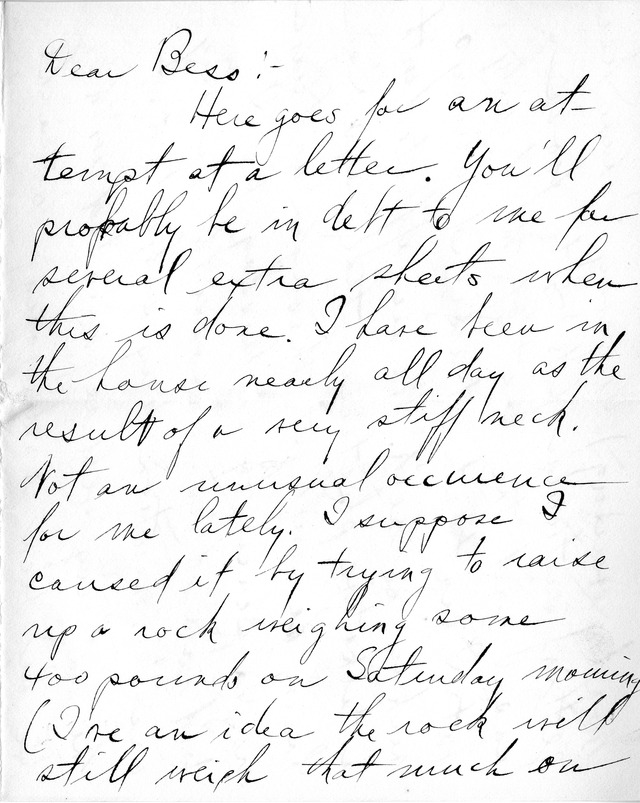 Dear Bess:-
Here goes for an at-
tempt at a letter. You'll
probably be in debt to me for
several extra sheets when
this is done. I have been in
the house nearly all day as the
result of a very stiff neck.
Not an unusual occurence
for me lately. I suppose I
caused it by trying to raise
up a rock weighing some
400 pounds on Saturday morning
(I've an idea the rock will
still weigh that much on